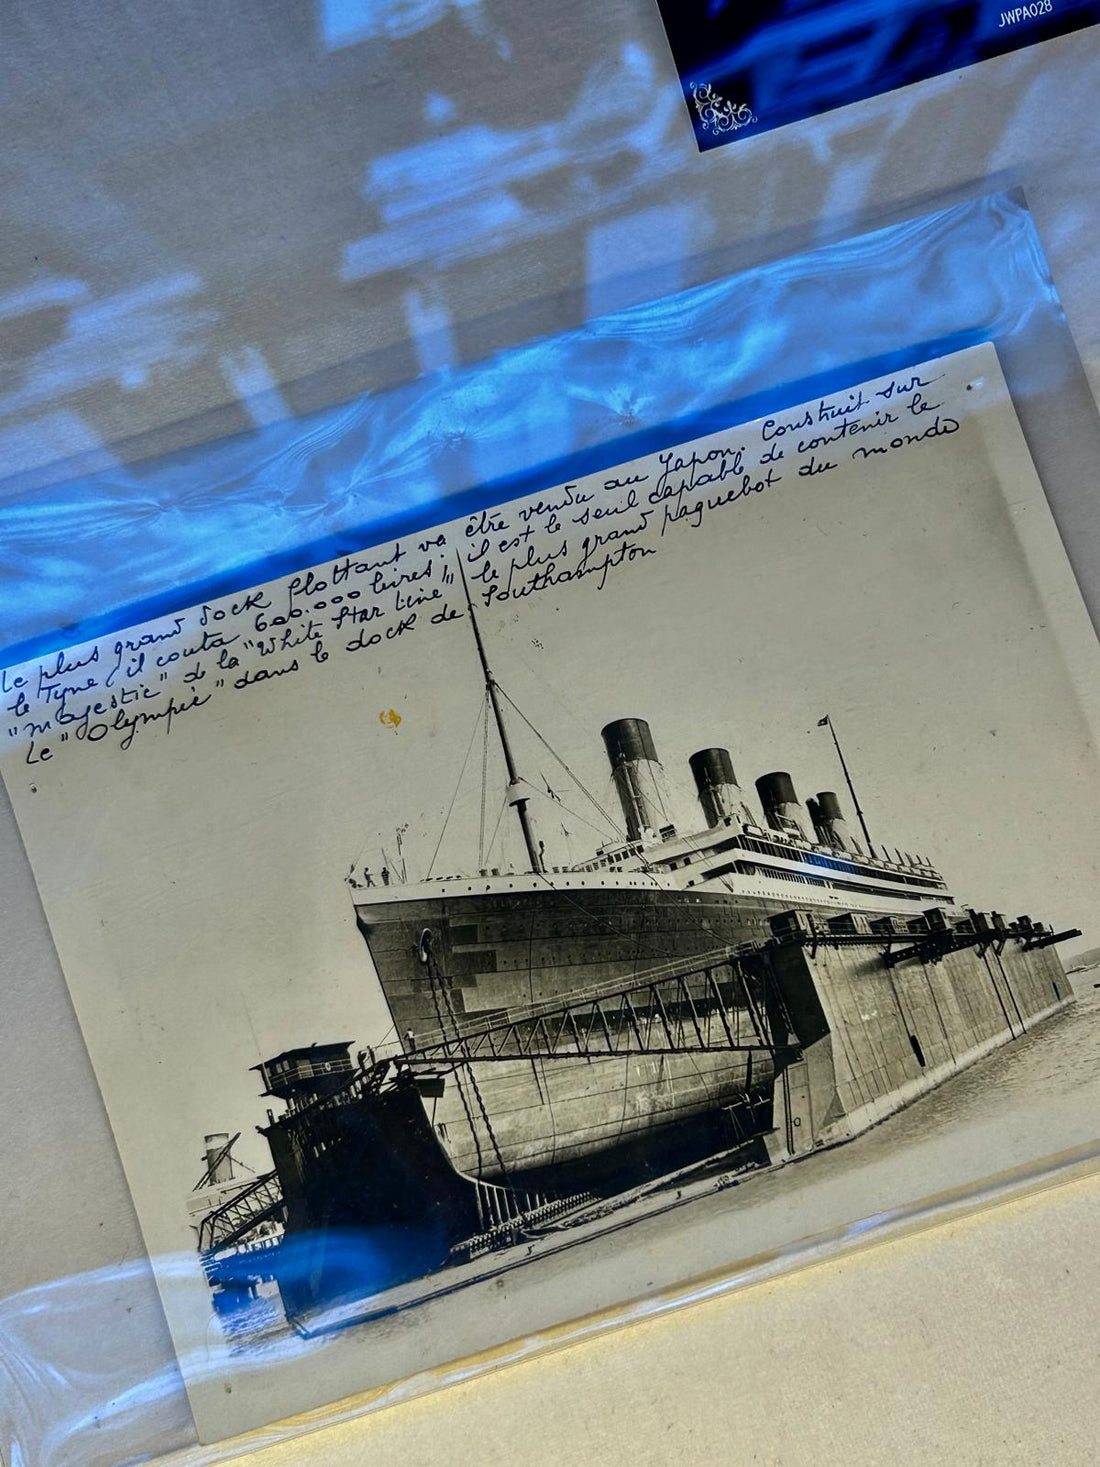 JWPA028
Le plus grand dock flottant va être vendu au Japon. Construit sur
le Tyne, il couta 600.000 livres; il est le seul capable de contenir le
"Majestic" de la "White Star Line", le plus grand paquebot du monde
Le "Olympic" dans le dock de Southampton